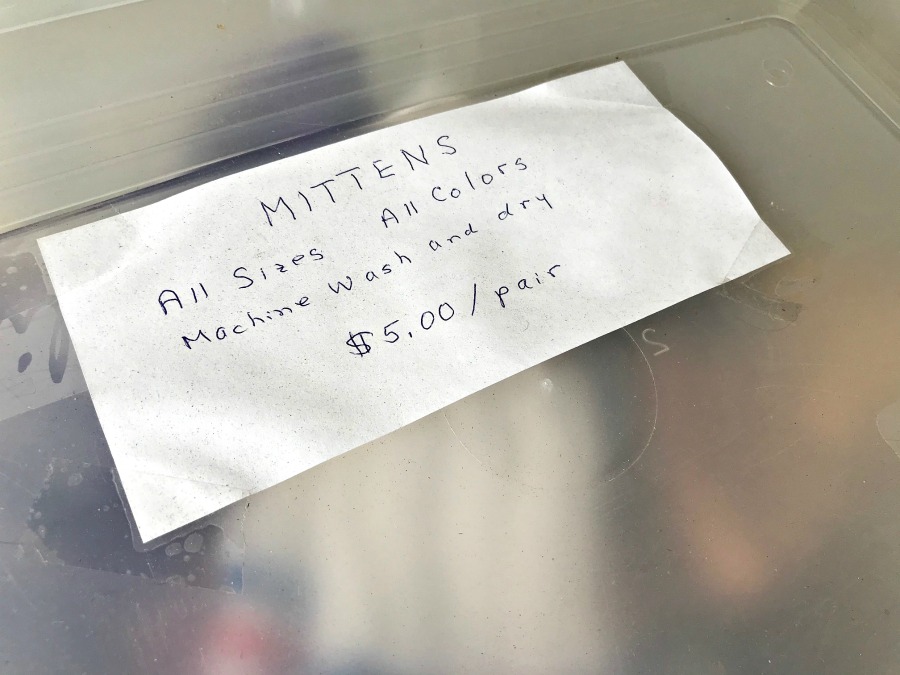 MITTENS
All Sizes All Colors
Machine Wash and dry
$5.00/pair